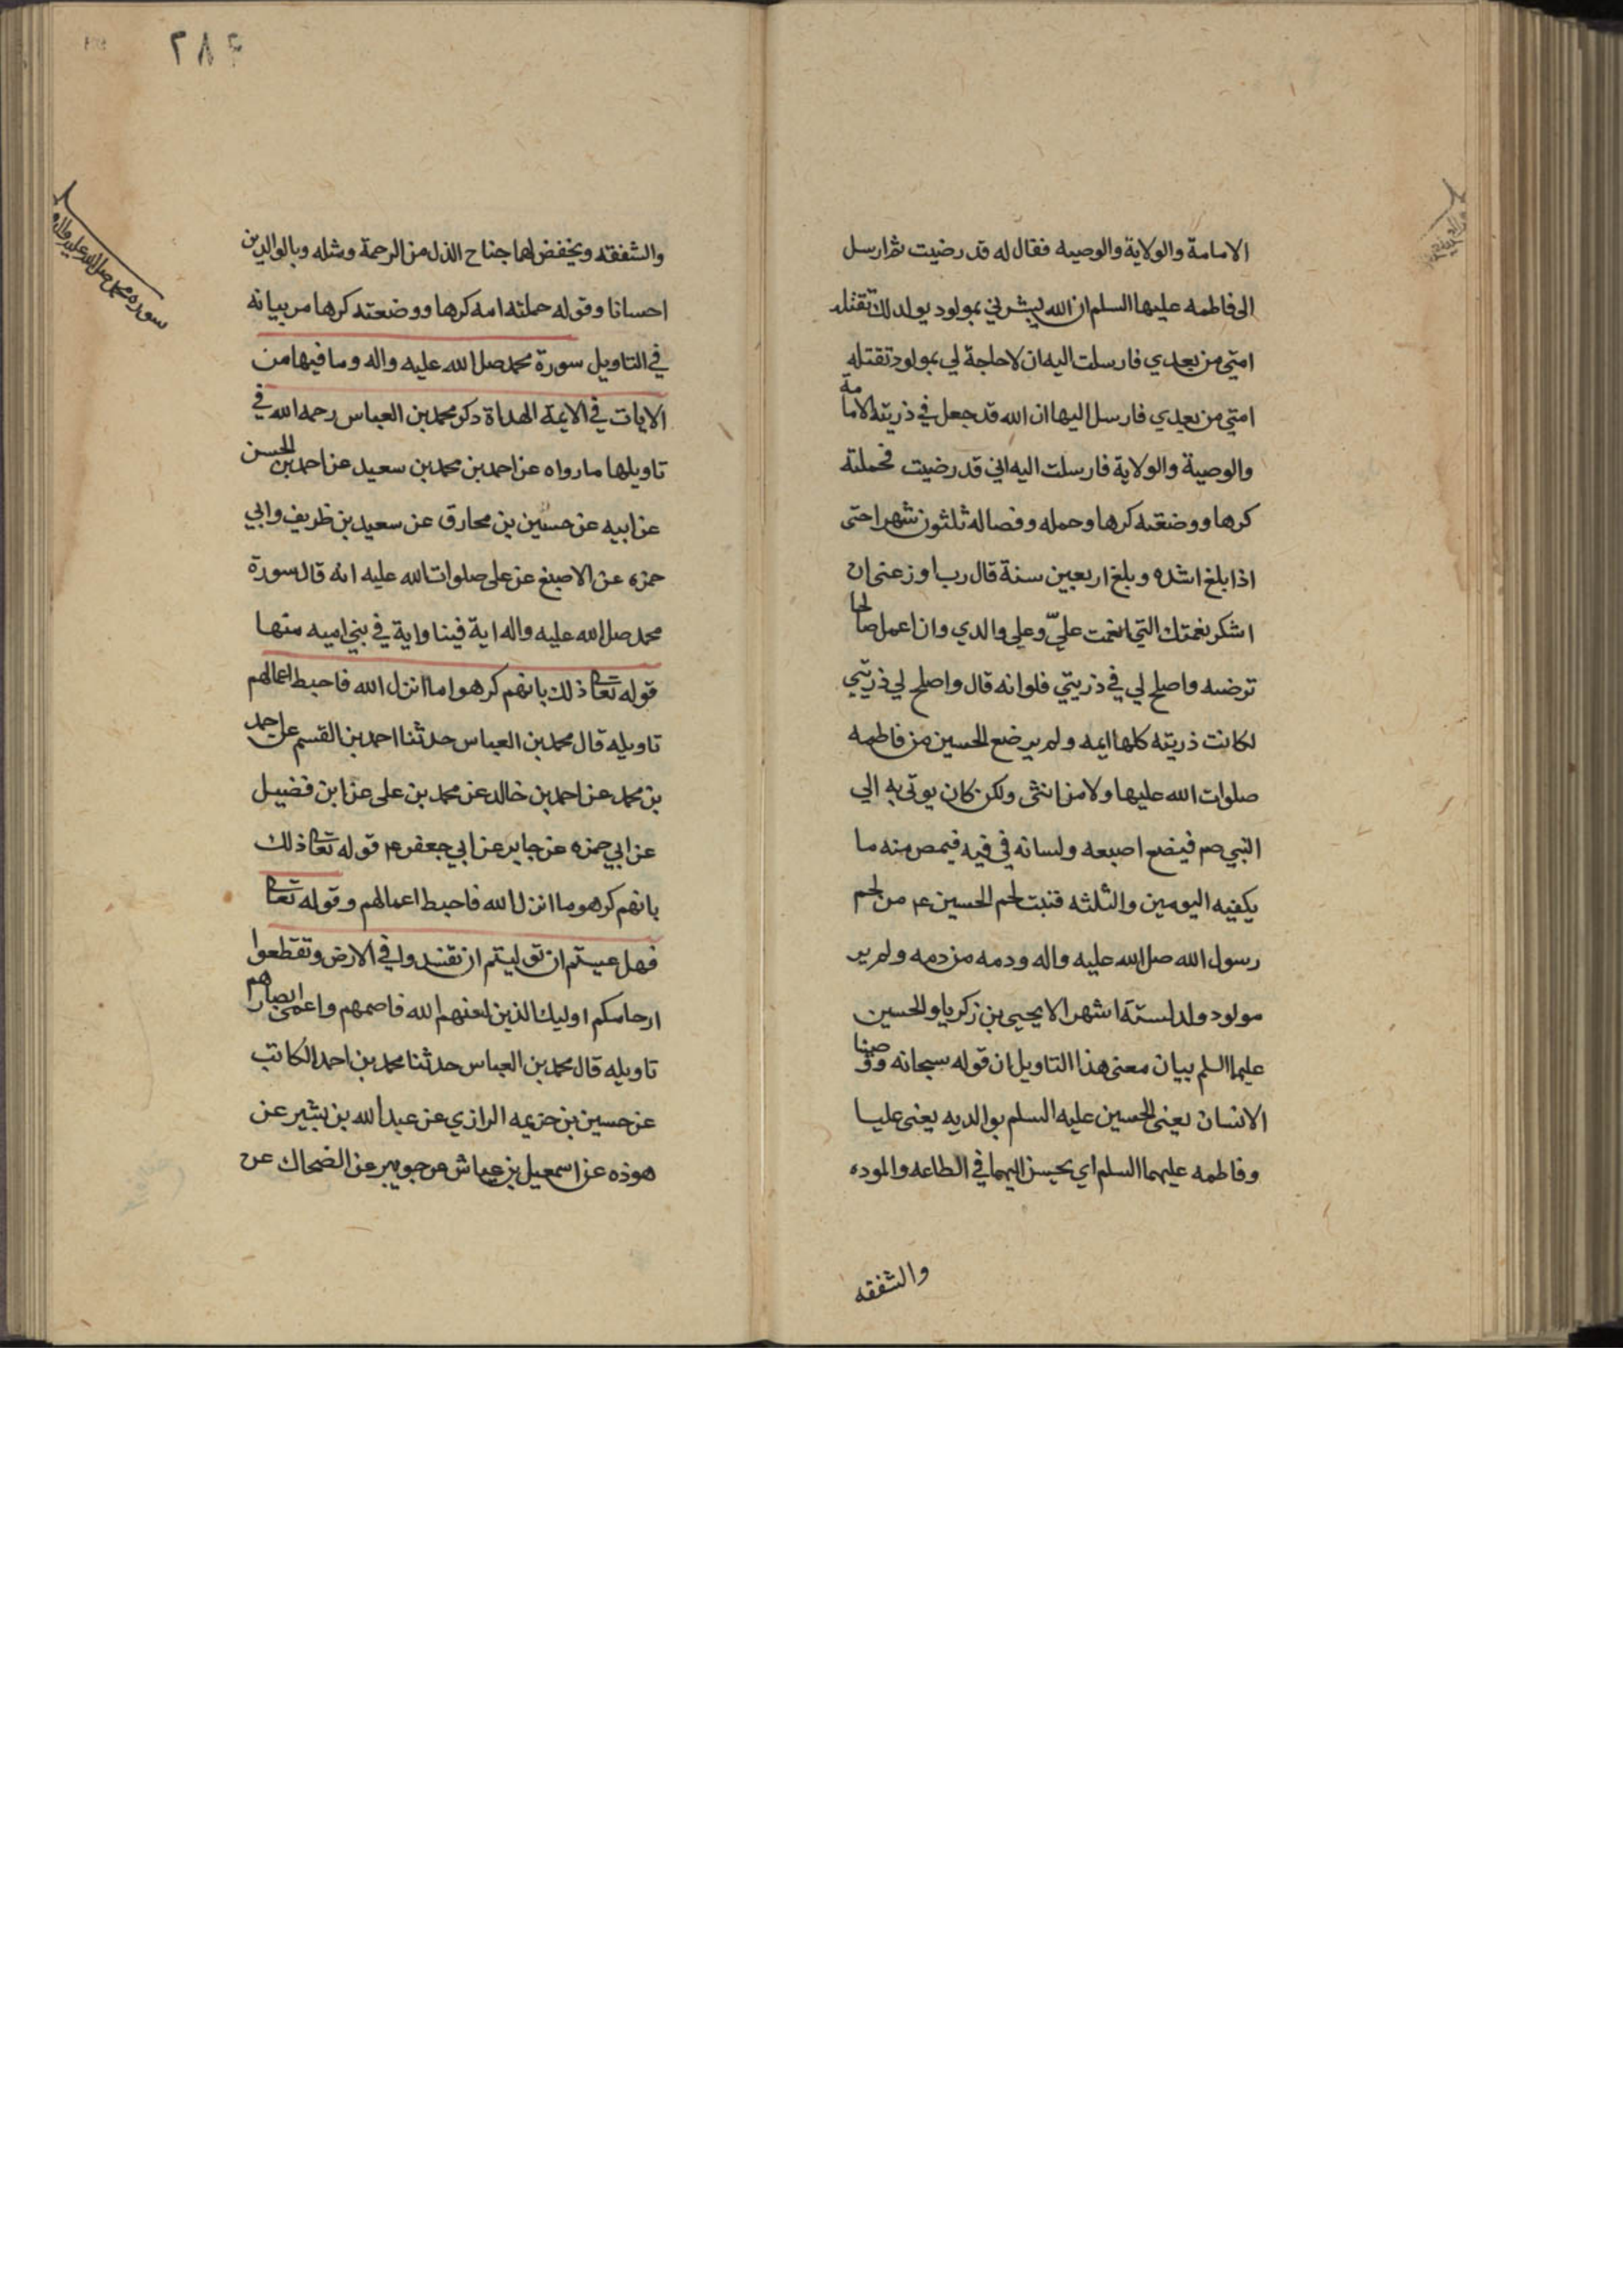 الامامة والولاية والوصيه فقال له قد رضيت ثم ارسل
الى فاطمه عليها السلم ان الله يبشرني بمولود يولد لك تقتله
امتي من بعدي فارسلت اليه ان لا حاجة لي بمولود تقتله
امتي من بعدي فارسل اليها ان الله قد جعل في ذريته الامامة
والوصية والولاية فارسلت اليه اني قد رضيت فحملته
كرها ووضعته كرها وحمله وفصاله ثلثون شهرا حتى
اذا بلغ اشده وبلغ اربعين سنة قال رب اوزعنى ان
اشكر نعمتك التي انعمت عليّ وعلى والدي وان اعمل صالحا
ترضىه واصلح لي في ذريتي فلوانه قال واصلح لي ذريتي
لكانت ذريته كلها ايمه ولم يرضع الحسين من فاطمه
صلوات الله عليها ولا من انثى ولكن كان يوتى به الي
النبي صم فيضع اصبعه ولسانه في فيه فيمص منه ما
يكفيه اليومين والثلثه فنبت لحم الحسين ع من لحم
رسول الله صلى الله عليه واله ودمه من دمه ولم ير
مولود ولد لستة اشهر الا يحيى بن زكريا والحسين
عليهما السلم بيان معنى هذا التاويل ان قوله سبحانه ووصينا
الانسان يعنى الحسين عليه السلم بوالديه يعنى عليا
وفاطمه عليهما السلم اي يحسن اليهما في الطاعه والموده
والشفقه
٢٨٢
سورة محمد صلى الله عليه واله
والشفقه ويخفض لهما جناح الذل من الرحمة ومثله وبالوالدين
احسانا وقوله حملته امه كرها ووضعته كرها مر بيانه
في التاويل سورة محمد صلى الله عليه واله وما فيها من
الايات في الايمة الهداة ذكر محمد بن العباس رحمه الله في
تاويلها ما رواه عن احمد بن محمد بن سعيد عن احمد بن الحسن
عن ابيه عن حسين بن مخارق عن سعيد بن ظريف وابي
حمزه عن الاصبغ عن على صلوات الله عليه انه قال سورة
محمد صلى الله عليه واله اية فينا واية في بني اميه منها
قوله تعا ذلك بانهم كرهوا ما انزل الله فاحبط اعمالهم
تاويله قال محمد بن العباس حدثنا احمد بن القسم عن احمد
بن محمد عن احمد بن خالد عن محمد بن على عن ابن فضيل
عن ابي حمزه عن جابر عن ابي جعفر ع قوله تعا ذلك
بانهم كرهو ما انزل الله فاحبط اعمالهم وقوله تعا
فهل عسيتم ان توليتم ان تفسدوا في الارض وتقطعوا
ارحامكم اوليك الذين لعنهم الله فاصمهم واعمى ابصارهم
تاويله قال محمد بن العباس حدثنا محمد بن احمد الكاتب
عن حسين بن خزيمه الرازي عن عبد الله بن بشير عن
هوذه عن اسمعيل بن عياش عن جويبر عن الضحاك عن